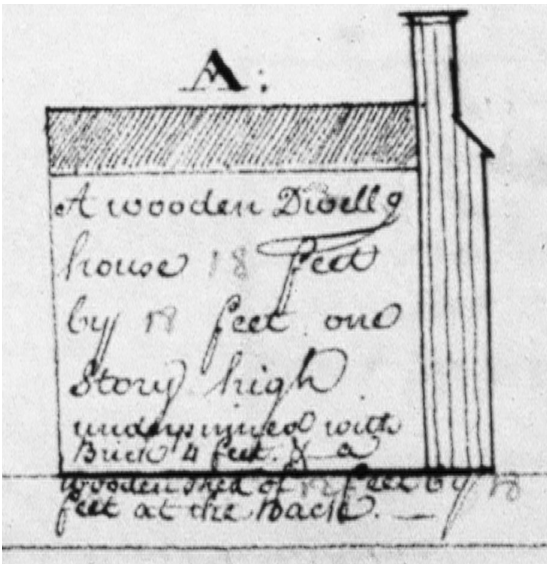 A:
A wooden Dwell g
house 18 feet
by 18 feet one
Story high
underpinned with
Brick 4 feet. & a
wooden shed of 12 feet by 18
feet at the Back.